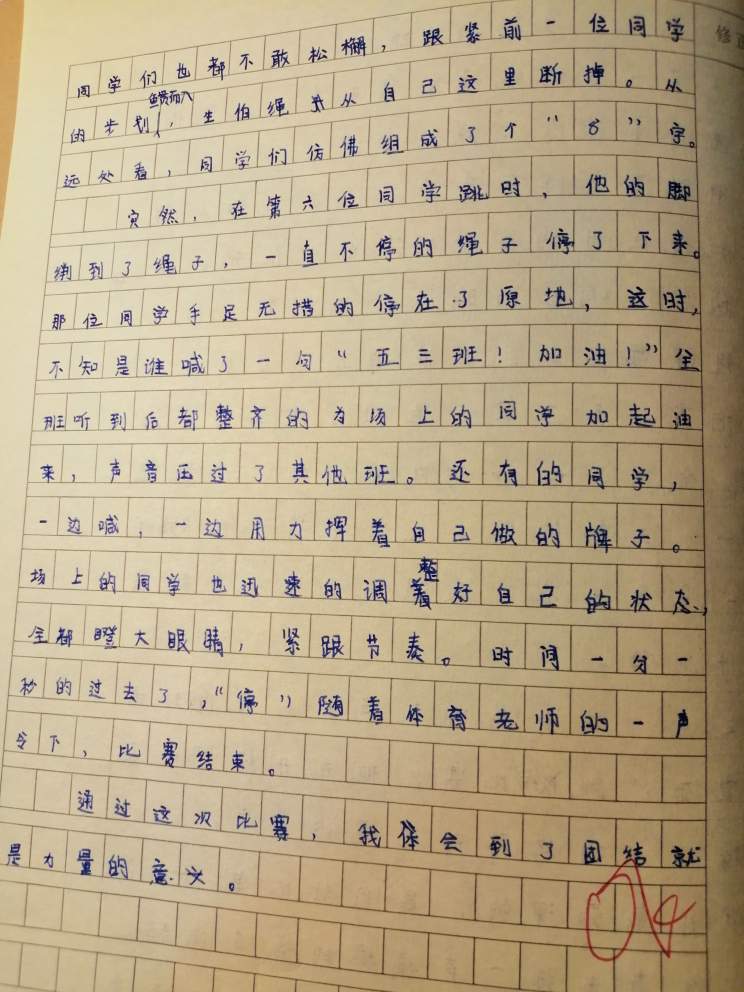 修
同学们也都不敢松懈，跟紧前一位同学
鱼贯而入
的步划，生伯绳子从自己这里断掉。从
远处看，同学们仿佛组成了个“8”字。
突然，在第六位同学跳时，他的脚
绑到了绳子，一直不停的绳子停了下来。
那位同学手足无措的停在了原地，这时，
不知是谁喊了一句“五三班！加油！”全
班听到后都整齐的为场上的同学加起油
来，声音压过了其他班。还有的同学，
一边喊，一边用力挥着自己做的牌子。
整
场上的同学也迅速的调着好自己的状态，
全都瞪大眼睛，紧跟节奏。时间一分一
秒的过去了，“停”随着体育老师的一声
令下，比赛结束。
通过这次比赛，我体会到了团结就
是力量的意义。